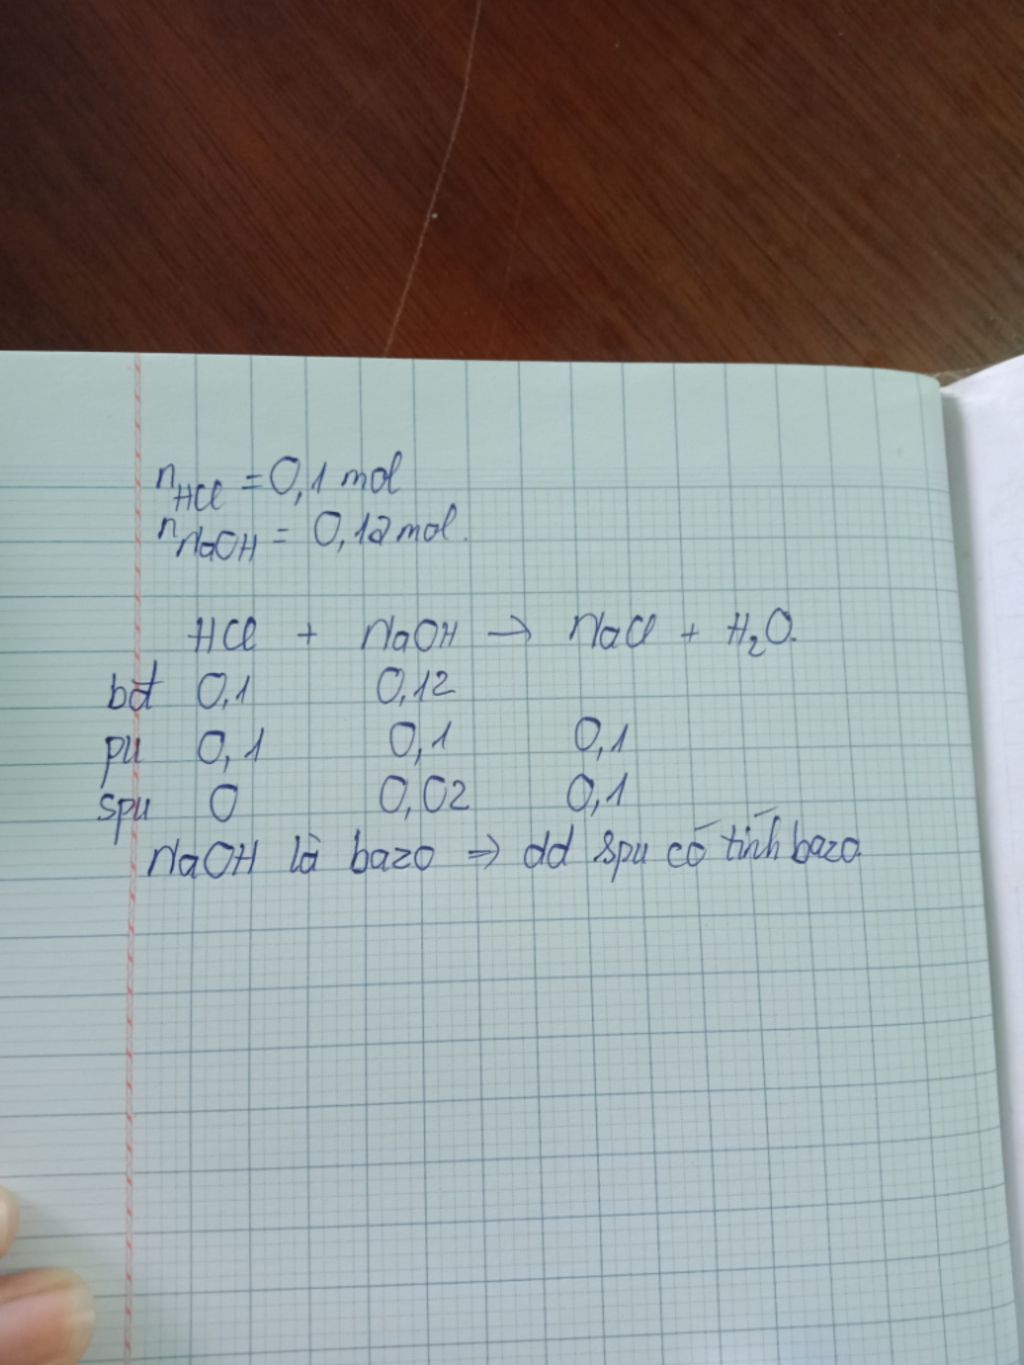 nHCl = 0,1 mol
nNaOH = 0,12 mol.
HCl + NaOH → NaCl + H₂O.
bđ 0,1 0,12
pư 0,1 0,1 0,1
spu 0 0,02 0,1
NaOH là bazo ⇒ dd spu có tính bazo.